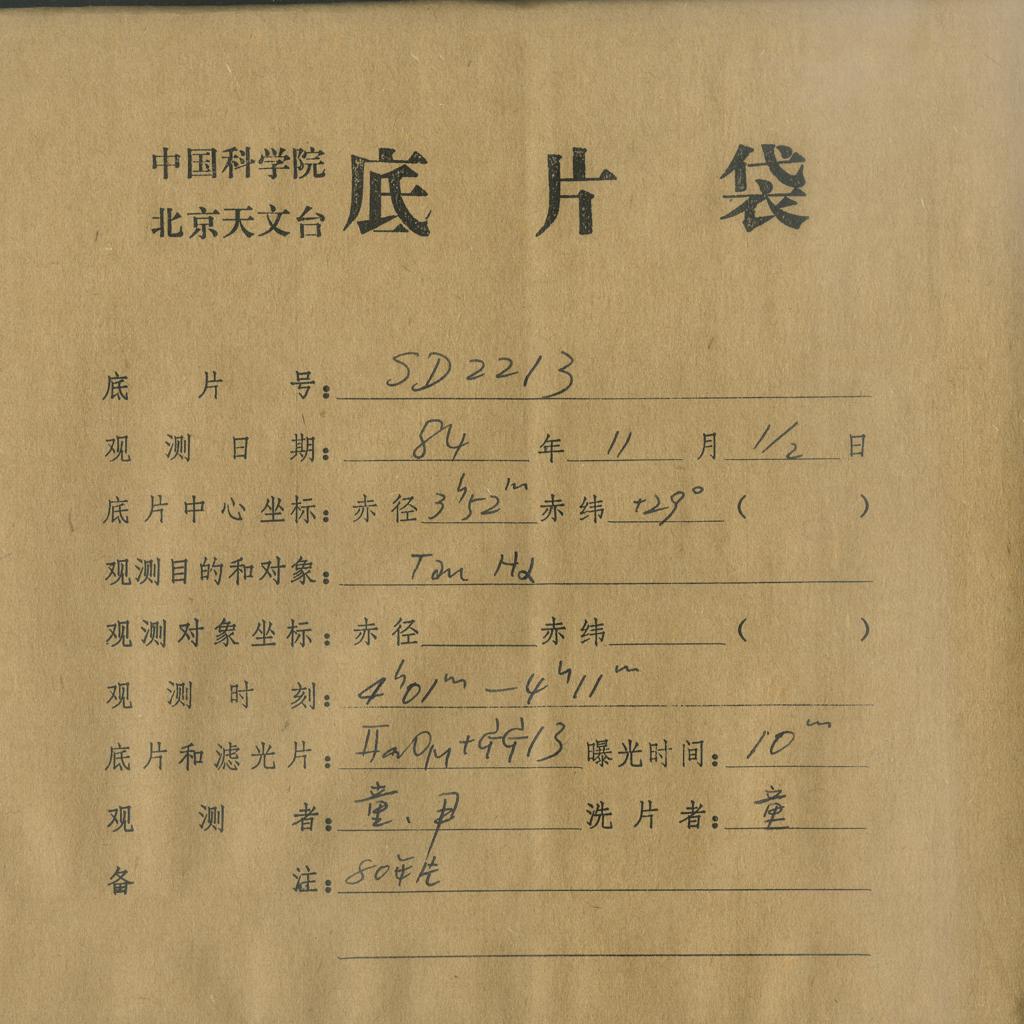 中国科学院
北京天文台
底片袋
底片号：SD2213
观测日期：84年11月1/2日
底片中心坐标：赤径3h52m赤纬+29°（ ）
观测目的和对象：Tau Hα
观测对象坐标：赤径 赤纬 （ ）
观测时刻：4h01m—4h11m
底片和滤光片：IIaO+GG13 曝光时间：10m
观测者：童、尹 洗片者：童
备注：80年片